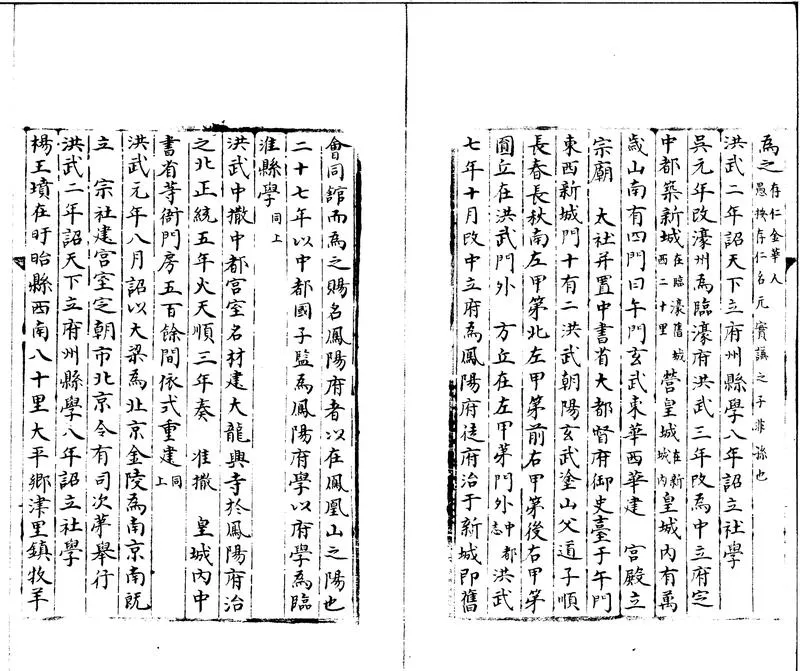 為之存仁金華人愚按存仁名元實謙之子非孫也
洪武二年詔天下立府州縣學八年詔立社學
吳元年改濠州為臨濠府洪武三年改為中立府定
中都築新城在臨濠舊城西二十里營皇城在新城內皇城內有萬
歲山南有四門曰午門玄武東華西華建　宮殿立
宗廟　大社并置中書省大都督府御史臺于午門
東西新城門十有二洪武朝陽玄武塗山父道子順
長春長秋南左甲第北左甲第前右甲第後右甲第
圜丘在洪武門外　方丘在左甲第門外中都志洪武
七年十月改中立府為鳳陽府徙府治于新城即舊
會同館而為之賜名鳳陽府者以在鳳凰山之陽也
二十七年以中都國子監為鳳陽府學以府學為臨
淮縣學同上
洪武中撒中都宮室名材建大龍興寺於鳳陽府治
之北正統五年火天順三年奏　准撒　皇城內中
書省等衙門房五百餘間依式重建同上
洪武元年八月詔以大梁為北京金陵為南京南既
立　宗社建宮室定朝市北京令有司次第舉行
洪武二年詔天下立府州縣學八年詔立社學
楊王墳在盱眙縣西南八十里大平鄉津里鎮牧羊